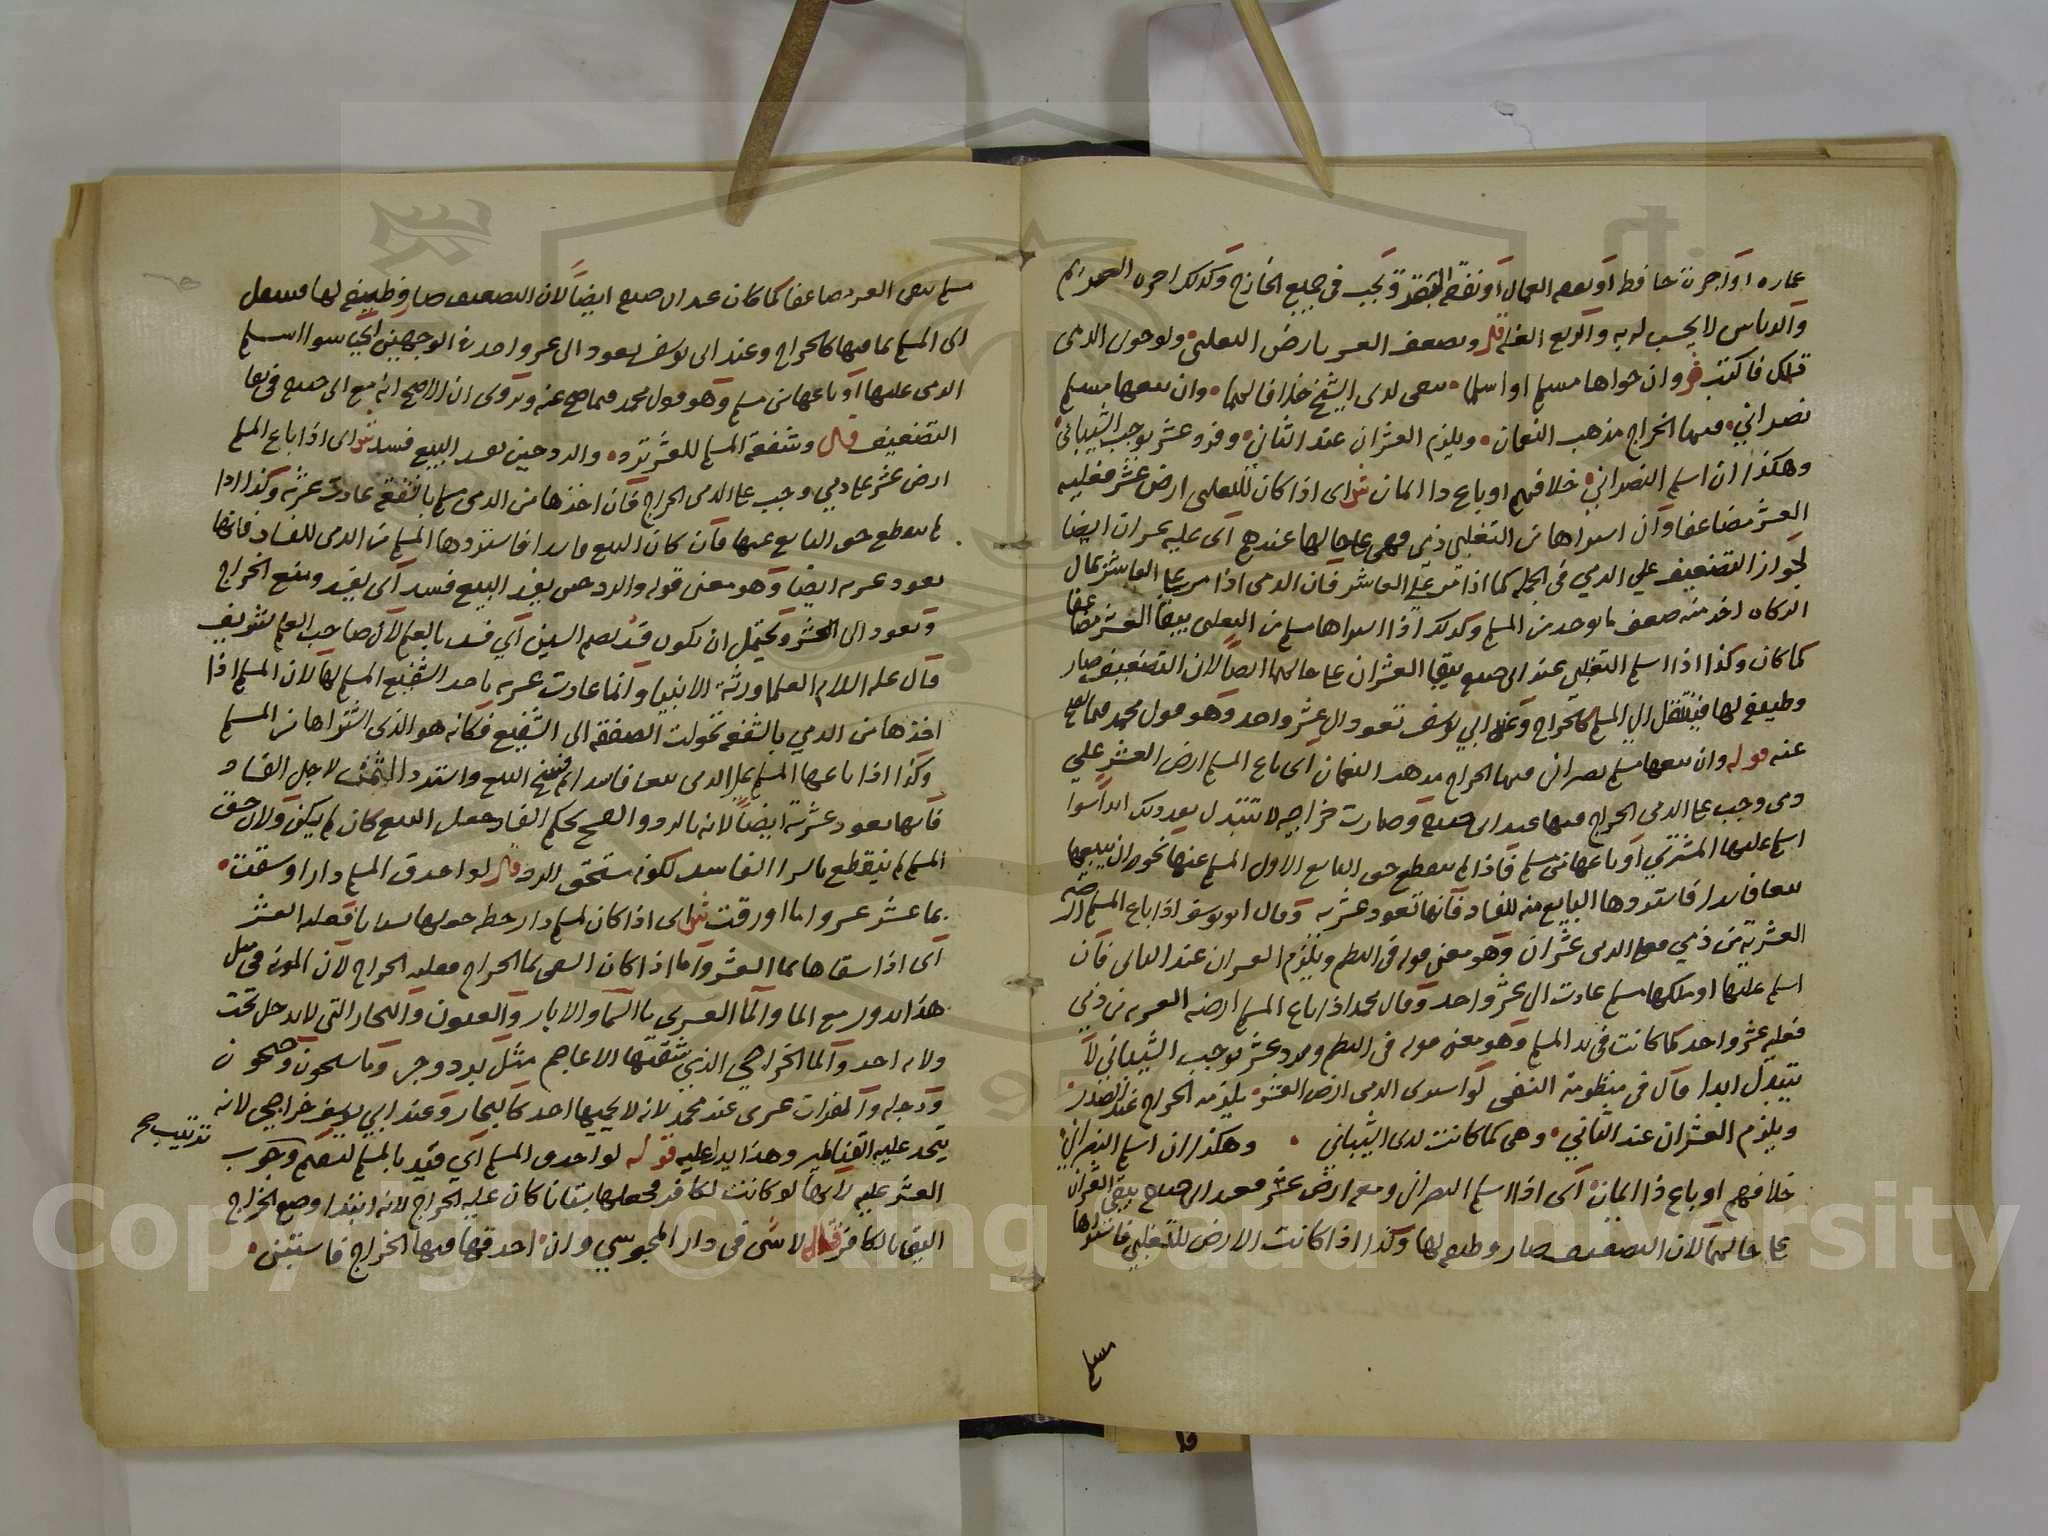 عماره او اجرة حافظ او نفقة العمال او نفقة البقر وتجب في جميع الخارج وكذلك اجره الحصاد
والدياس لا يحسب له به والربع الغلة قال ويضعف العشر بارض التغلبي ولو حوى الذمي
تلك فاكتب وان حواها مسلم او اسلما يبقى لدى الشيخ خلافا لهما وان يبعها مسلم
نصراني ففيها الخراج مذهب النعمان ويلزم العشران عند الثاني وفرد عشر يوجب الشيباني
وهكذا ان اسلم النصراني خلافهم او باع ذا الايمان ش اى اذا كان للتغلبي ارض عشر فعليه
العشر مضاعفا وان اشتراها من التغلبي ذمي فهي على حالها عندهم اى عليه عشران ايضا
لجواز التضعيف على الذمي في الجملة كما اذا مر على العاشر فان الذمي اذا مر على العاشر بمال
الزكاة اخذ منه ضعف ما يوخذ من المسلم وكذلك اذا اشتراها مسلم من التغلبي يبقا العشر مضاعفا
كما كان وكذا اذا اسلم التغلبي عند ابي حنيفة يبقا العشران على حالهما ايضا لان التضعيف صار
وظيفة لها فينتقل الى المسلم كالخراج وعند ابي يوسف تعود الى عشر واحد وهو قول محمد فيما صح
عنه قوله وان يبعها مسلم نصراني ففيها الخراج مذهب النعمان اى باع المسلم ارض العشر على
ذمي وجب على الذمي الخراج فيها عند ابي حنيفة وصارت خراجيه لا تتبدل بعد ذلك ابدا سوا
اسلم عليها المشتري او باعها من مسلم فاذا لم ينقطع حق البايع الاول المسلم عنها نحو ان يبيعها
بيعا فاسدا فاستردها البايع منه للفساد فانها تعود عشرية وقال ابو يوسف اذا باع المسلم ارضه
العشرية من ذمي فعلى الذمي عشران وهو معنى قوله في النظم ويلزم العشران عند الثاني فان
اسلم عليها او ملكها مسلم عادت الى عشر واحد وقال محمد اذا باع المسلم ارضه العشرية من ذمي
فعليه عشر واحد كما كانت في يد المسلم وهو معنى قوله في النظم وفرد عشر يوجب الشيباني لا
تتبدل ابدا قال في منظومة النسفي لو اشترى الذمي ارض العشر يلزمه الخراج عند الصدر
ويلزم العشران عند الثاني وهي كما كانت لدى الشيباني وهكذا ان اسلم النصراني
خلافهم او باع ذا الايمان اى اذا اسلم النصراني ومعه ارض عشر فعند ابي حنيفة يبقى العشران
على حالهما لان التضعيف صار وظيفة لها وكذا اذا كانت الارض للتغلبي فاشتراها
مسلم
مسلم يبقى العشر مضاعفا كما كان عند ابي حنيفة ايضا لان التضعيف صار وظيفة لها فينتقل
الى المسلم بما فيها كالخراج وعند ابي يوسف يعود الى عشر واحد في الوجهين اى سوا اسلم
الذمي عليها او باعها من مسلم وهو قول محمد فيما صح عنه ويروى ان الاصح انه مع ابي حنيفة في بقا
التضعيف قال وشفعة المسلم للعشر ترد والرد حين بعد البيع فسد ش اى اذا باع المسلم
ارض عشر على ذمي وجب على الذمي الخراج فان اخذها من الذمي مسلم بالشفعة عادت عشرية وكذا اذا
لم ينقطع حق البايع عنها فان كان البيع فاسدا فاستردها المسلم من الذمي للفساد فانها
تعود عشرية ايضا وهو معنى قوله والرد حين بعد البيع فسد اى يفيد ويمنع الخراج
وتعود الى العشر ويحتمل ان تكون قد بضم السين اى فسد بالعلم لان صاحب العلم شريف
قال عليه السلام العلما ورثة الانبيا وانما عادت عشرية باخذ الشفيع المسلم لها لان المسلم اذا
اخذها من الذمي بالشفعة تحولت الصفقة الى الشفيع فكانه هو الذى اشتراها من المسلم
وكذا اذا باعها المسلم على الذمي بيعا فاسدا ثم فسخ البيع واسترد الثمن لاجل الفساد
فانها تعود عشرية ايضا لانه بالرد والفسخ بحكم الفساد جعل البيع كان لم يكن ولان حق
المسلم لم ينقطع بالشرا الفاسد لكونه مستحق الرد قال لو احدق المسلم دارا وسقت
بما عشر عشروا ما اورقت ش اى اذا كان لمسلم دار خطة حولها بستانا فعليه العشر
اى اذا سقاها بما العشر واما اذا كان السقي بما الخراج فعليه الخراج لان المونة في مثل
هذا تدور مع الما والما العشري ما السما والابار والعيون والبحار التي لا يدخل تحت
ولاية احد والما الخراجي الذي شقتها الاعاجم مثل يزدجرد وما سيحون وجيحون
ودجله والفرات عشرى عند محمد لانه لا يحميها احد كالبحار وعند ابي يوسف خراجي لانه
يتخذ عليه القناطير وهذا يد عليه قوله لو احدق المسلم اى قيد بالمسلم ليصح وجوب
ترتيب صح
العشر عليه لانها لو كانت لكافر فجعلها بستانا كان عليه الخراج لانه ابتدا وضع الخراج
اليقا بالكافر قال لا شى في دار المجوسي وان احدقها فيها الخراج فاستبن